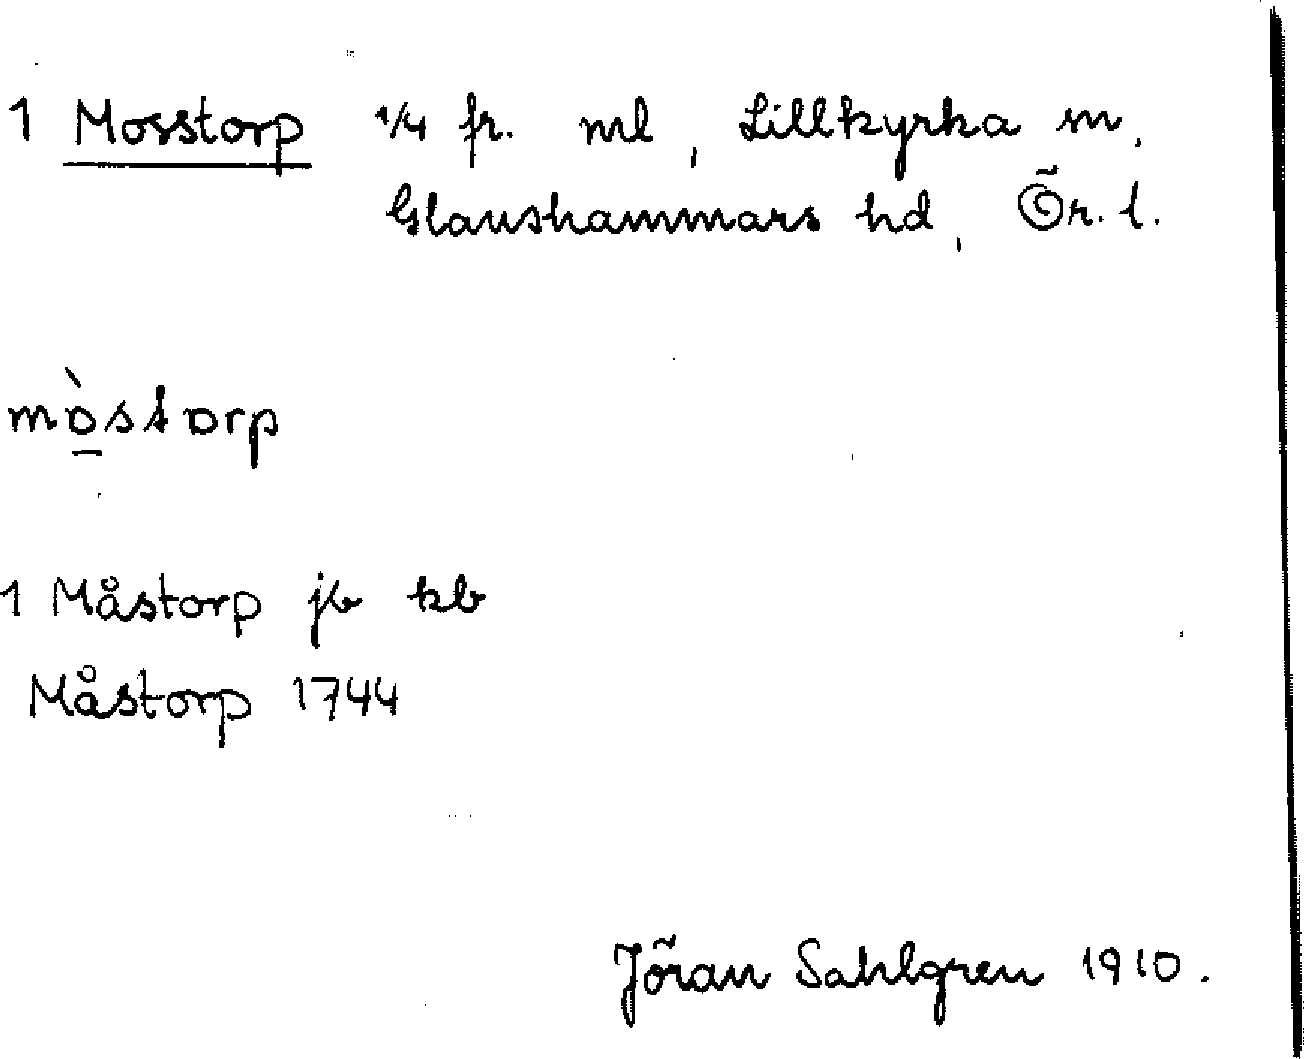 1 Mosstorp 1/4 fr. ml, Lillkyrka sn,
Glanshammars hd, Ör. l.
mòstorp
1 Måstorp jb kb
Måstorp 1744
Jöran Sahlgren 1910.